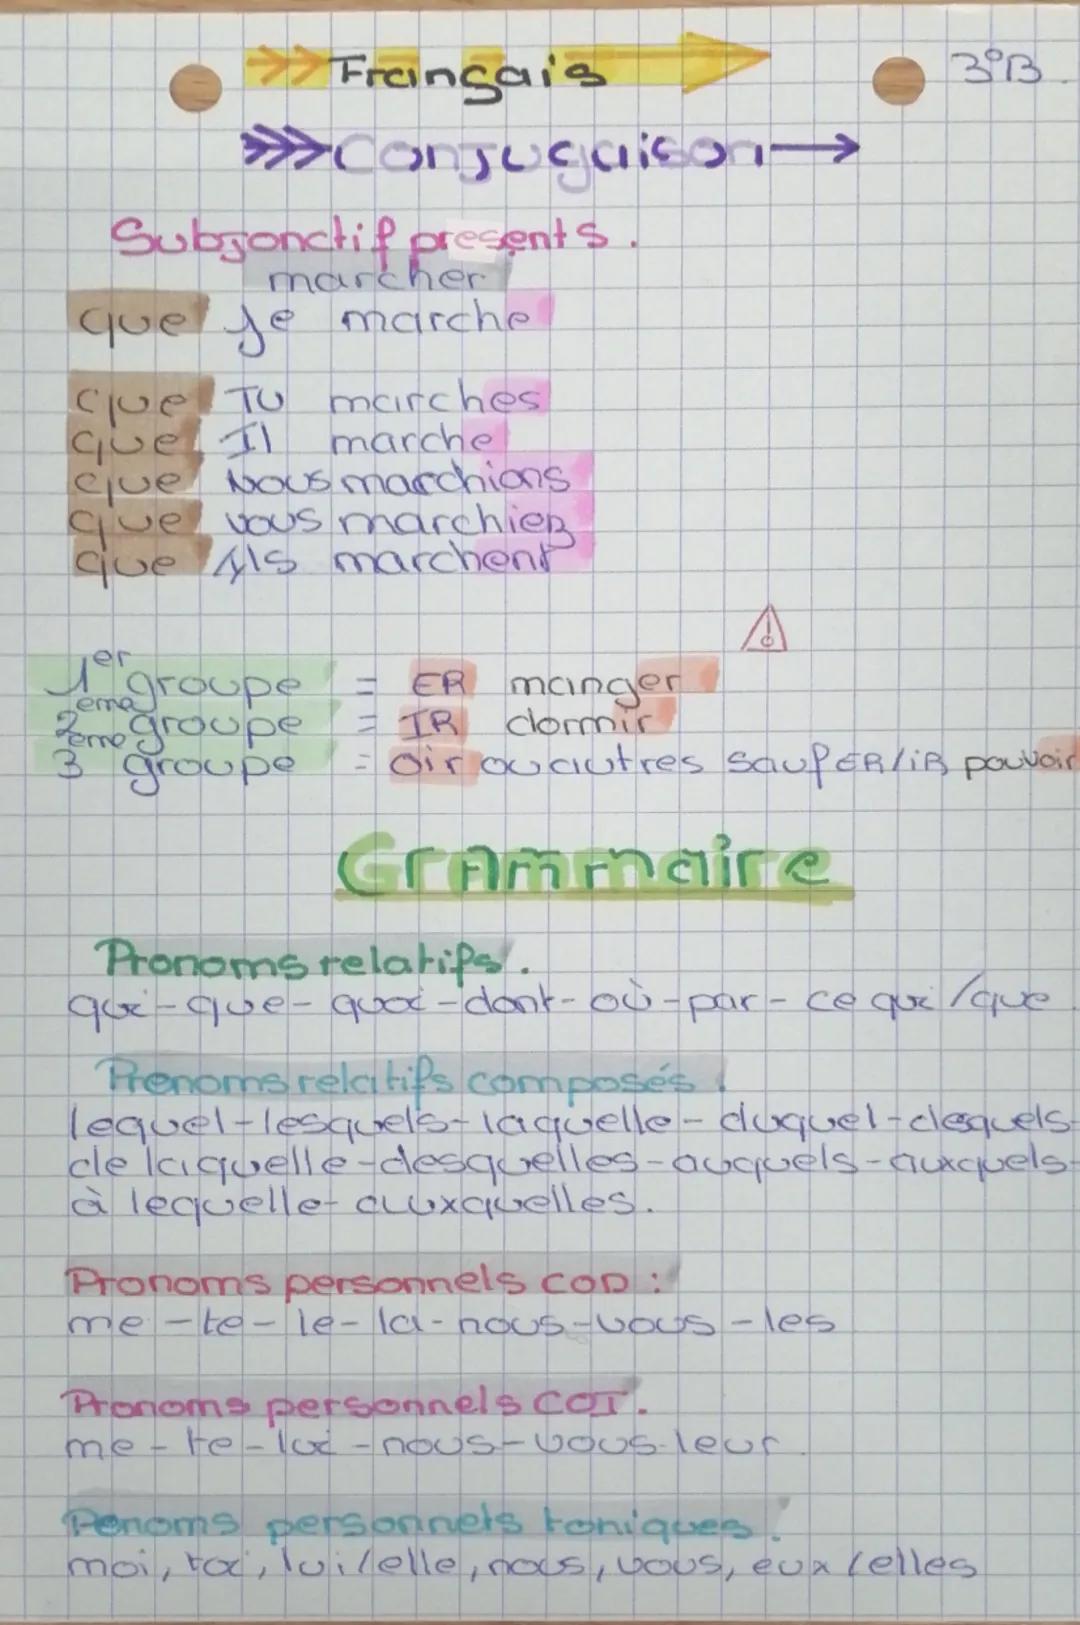 Français 3°B.
Conjugaison
Subjonctif presents.
marcher
que je marche
que Tu marches
que Il marche
que Nous marchions
que vous marchiez
que Ils marchent
1er groupe = ER manger
2eme groupe = IR dormir
3eme groupe = oir ou autres sauf ER/iR pouvoir
Grammaire
Pronoms relatifs.
qui - que - quoi - dont - où - par - ce qui / que
Prenoms relatifs composés.
lequel - lesquels - laquelle - duquel - desquels -
de laquelle - desquelles - auquels - auxquels -
à lequelle - auxquelles.
Pronoms personnels COD :
me - te - le - la - nous - vous - les
Pronoms personnels COI.
me - te - lui - nous - vous - leur
Penoms personnels toniques.
moi, toi, lui/elle, nous, vous, eux/elles